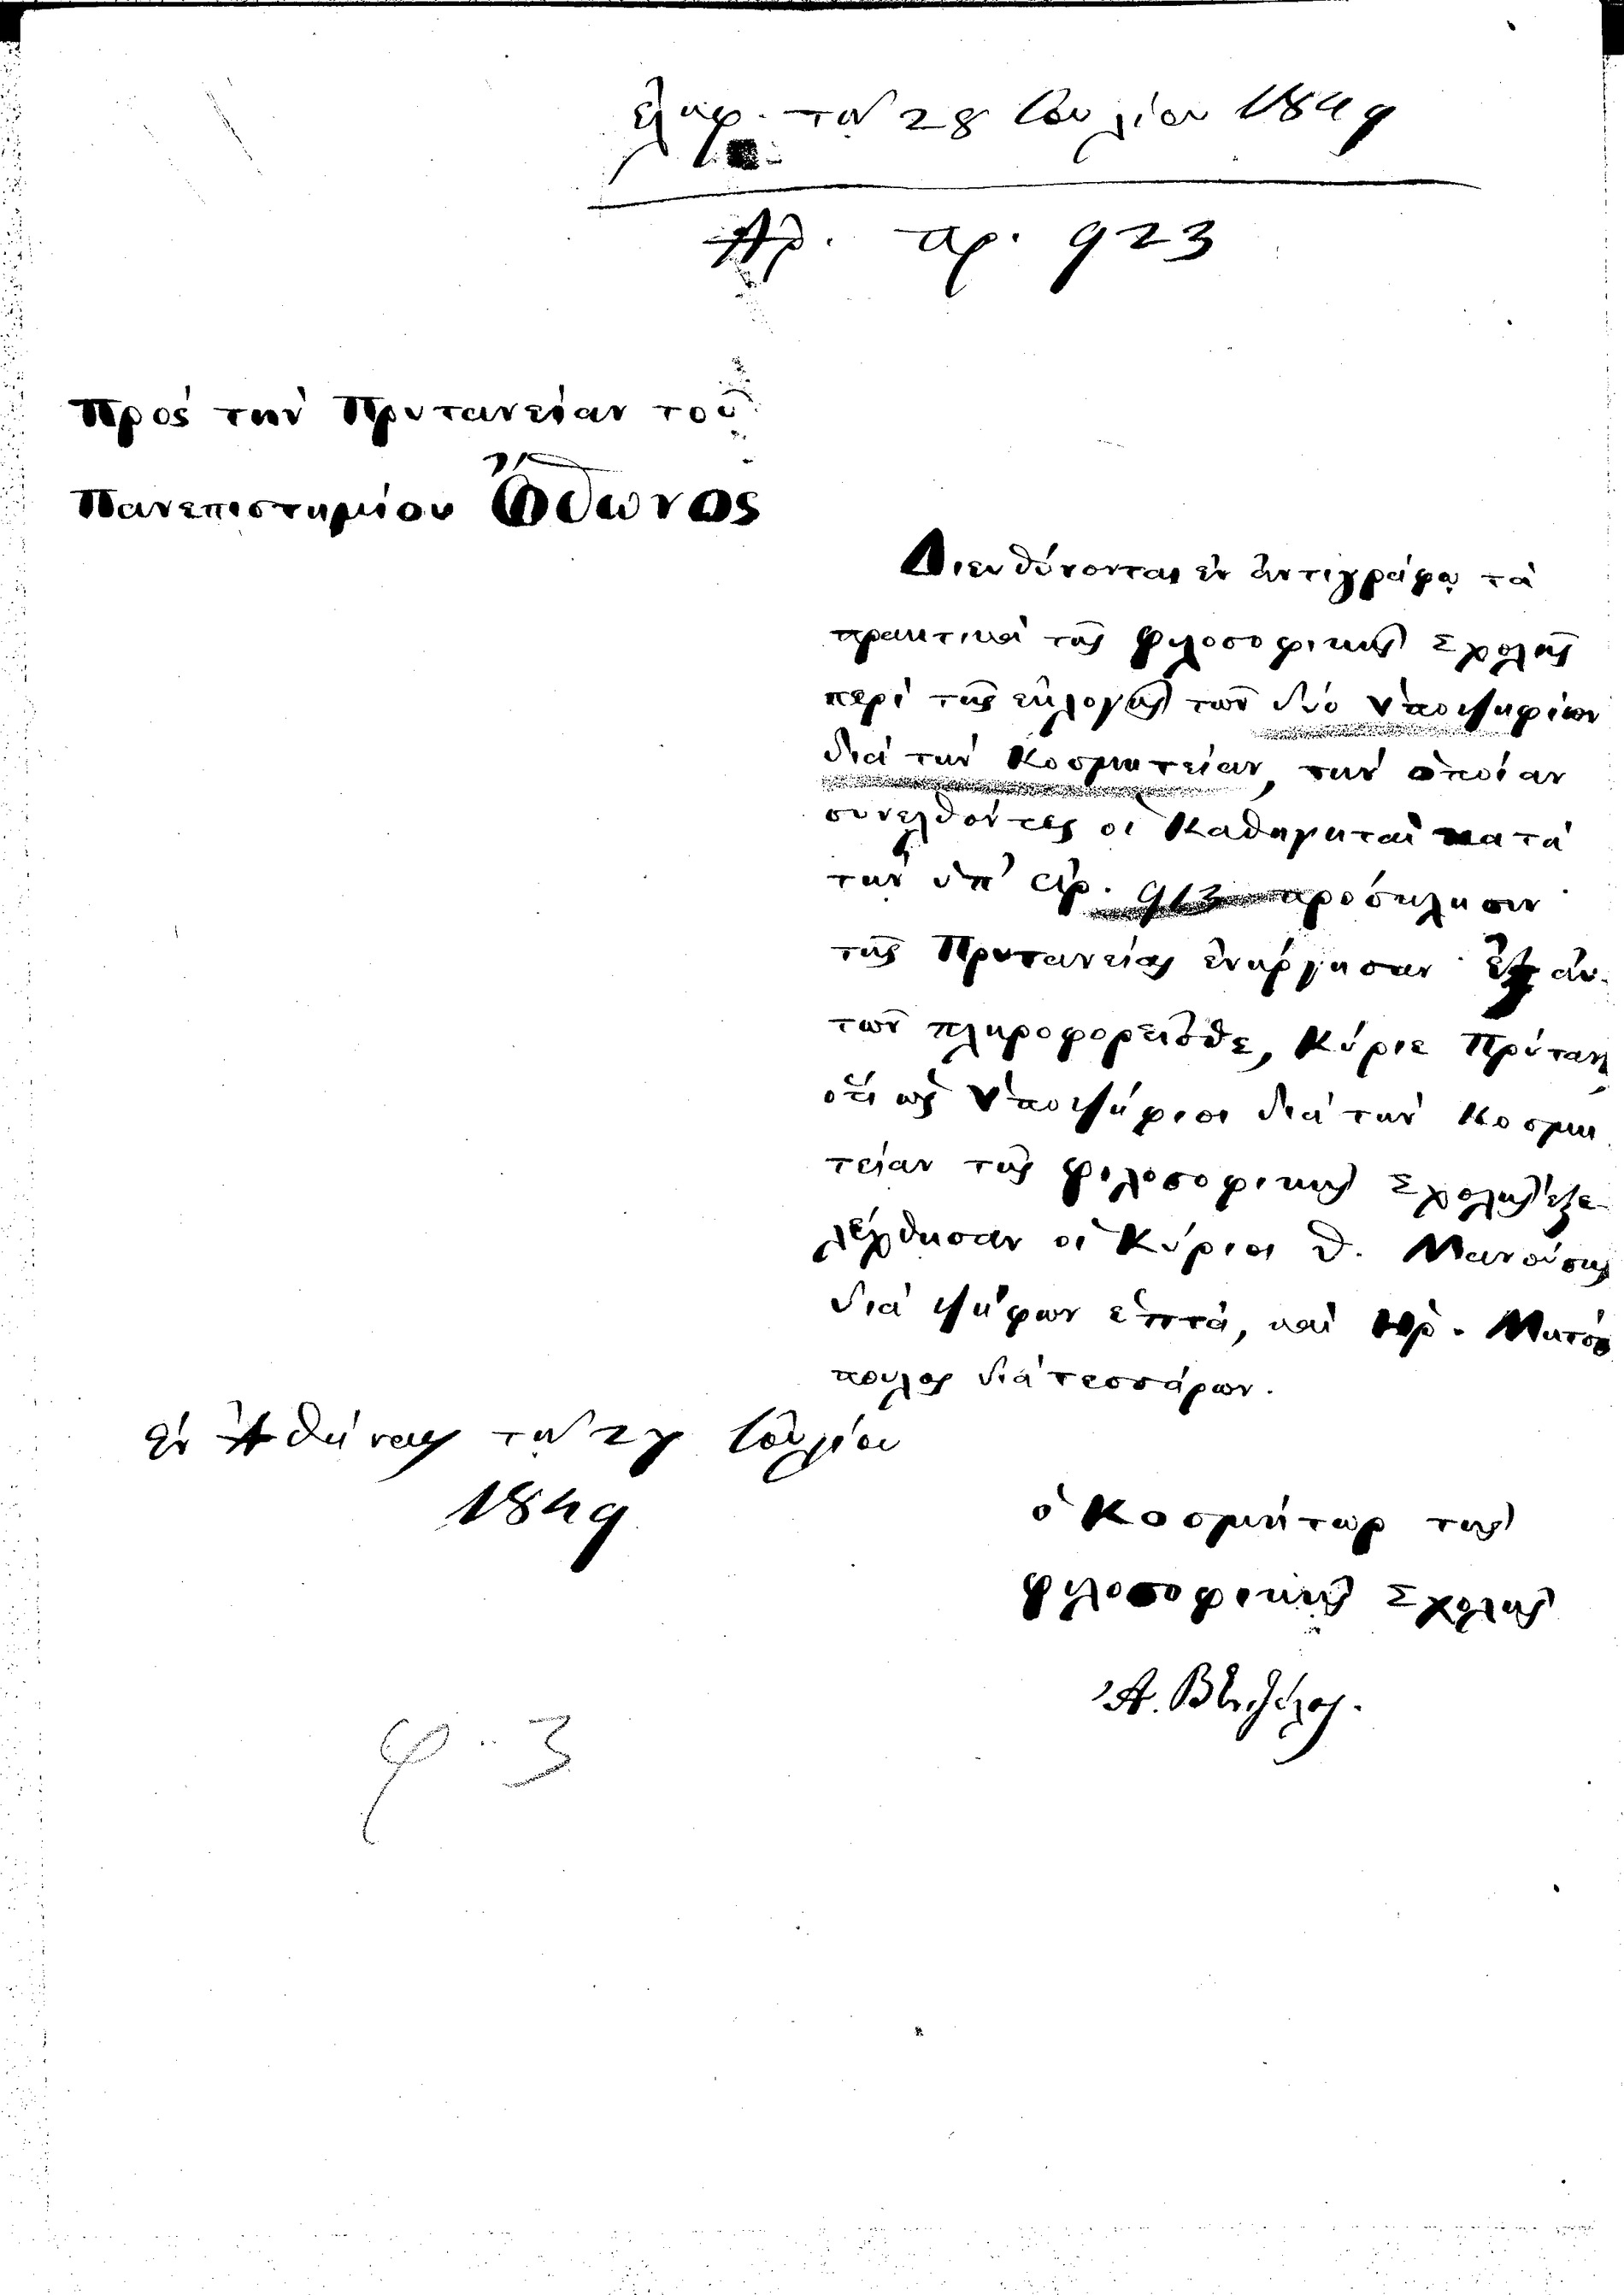 ἐλήφ. τῇ 28 Ἰουλίου 1849
Ἀρ. πρ. 923
Πρὸς τὴν Πρυτανείαν τοῦ
Πανεπιστημίου Ὄθωνος
Διευθύνονται ἐν ἀντιγράφῳ τὰ
πρακτικὰ τῆς φιλοσοφικῆς Σχολῆς
περὶ τῆς ἐκλογῆς τῶν δύο Ὑποψηφίων
διὰ τὴν Κοσμητείαν, τὴν ὁποίαν
συνελθόντες οἱ Καθηγηταὶ κατὰ
τὴν ὑπ' ἀρ. 913 πρόσκλησιν
τῆς Πρυτανείας ἐνήργησαν. Ἐξ αὐ-
τῶν πληροφορεῖσθε, Κύριε Πρύτανι
ὅτι ὡς Ὑποψήφιοι διὰ τὴν Κοσμη
τείαν τῆς φιλοσοφικῆς Σχολῆς ἐξε-
λέχθησαν οἱ Κύριοι Θ. Μανούσης
διὰ ψήφων ἑπτὰ, καὶ Ἡρ. Μητσό
πουλος διὰ τεσσάρων.
ἐν Ἀθήναις τῇ 27 Ἰουλίου
1849
ὁ Κοσμήτωρ τῆς
φιλοσοφικῆς Σχολῆς
Ἀ. Βενθύλος.
φ. 3